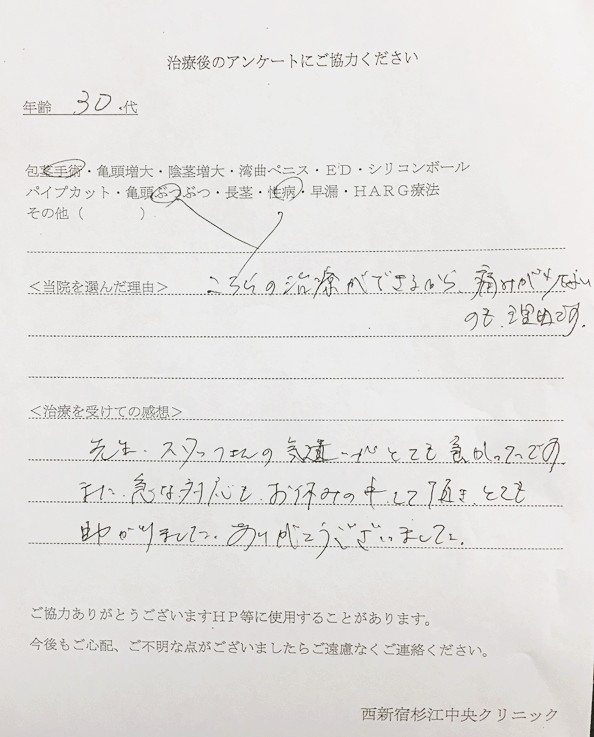 治療後のアンケートにご協力ください
年齢 30.代
包茎手術・亀頭増大・陰茎増大・湾曲ペニス・ED・シリコンボール
パイプカット・亀頭ぶつぶつ・長茎・性病・早漏・HARG療法
その他（ ）
＜当院を選んだ理由＞ こちらの治療ができるから、痛みが少ない
のも、理由です。
＜治療を受けての感想＞
先生、スタッフさんの気遣いがとても良かったです。
また、急な対応も、お休みの中して頂き、とても
助かりました。ありがとうございました。
ご協力ありがとうございますHP等に使用することがあります。
今後もご心配、ご不明な点がございましたらご遠慮なくご連絡ください。
西新宿杉江中央クリニック